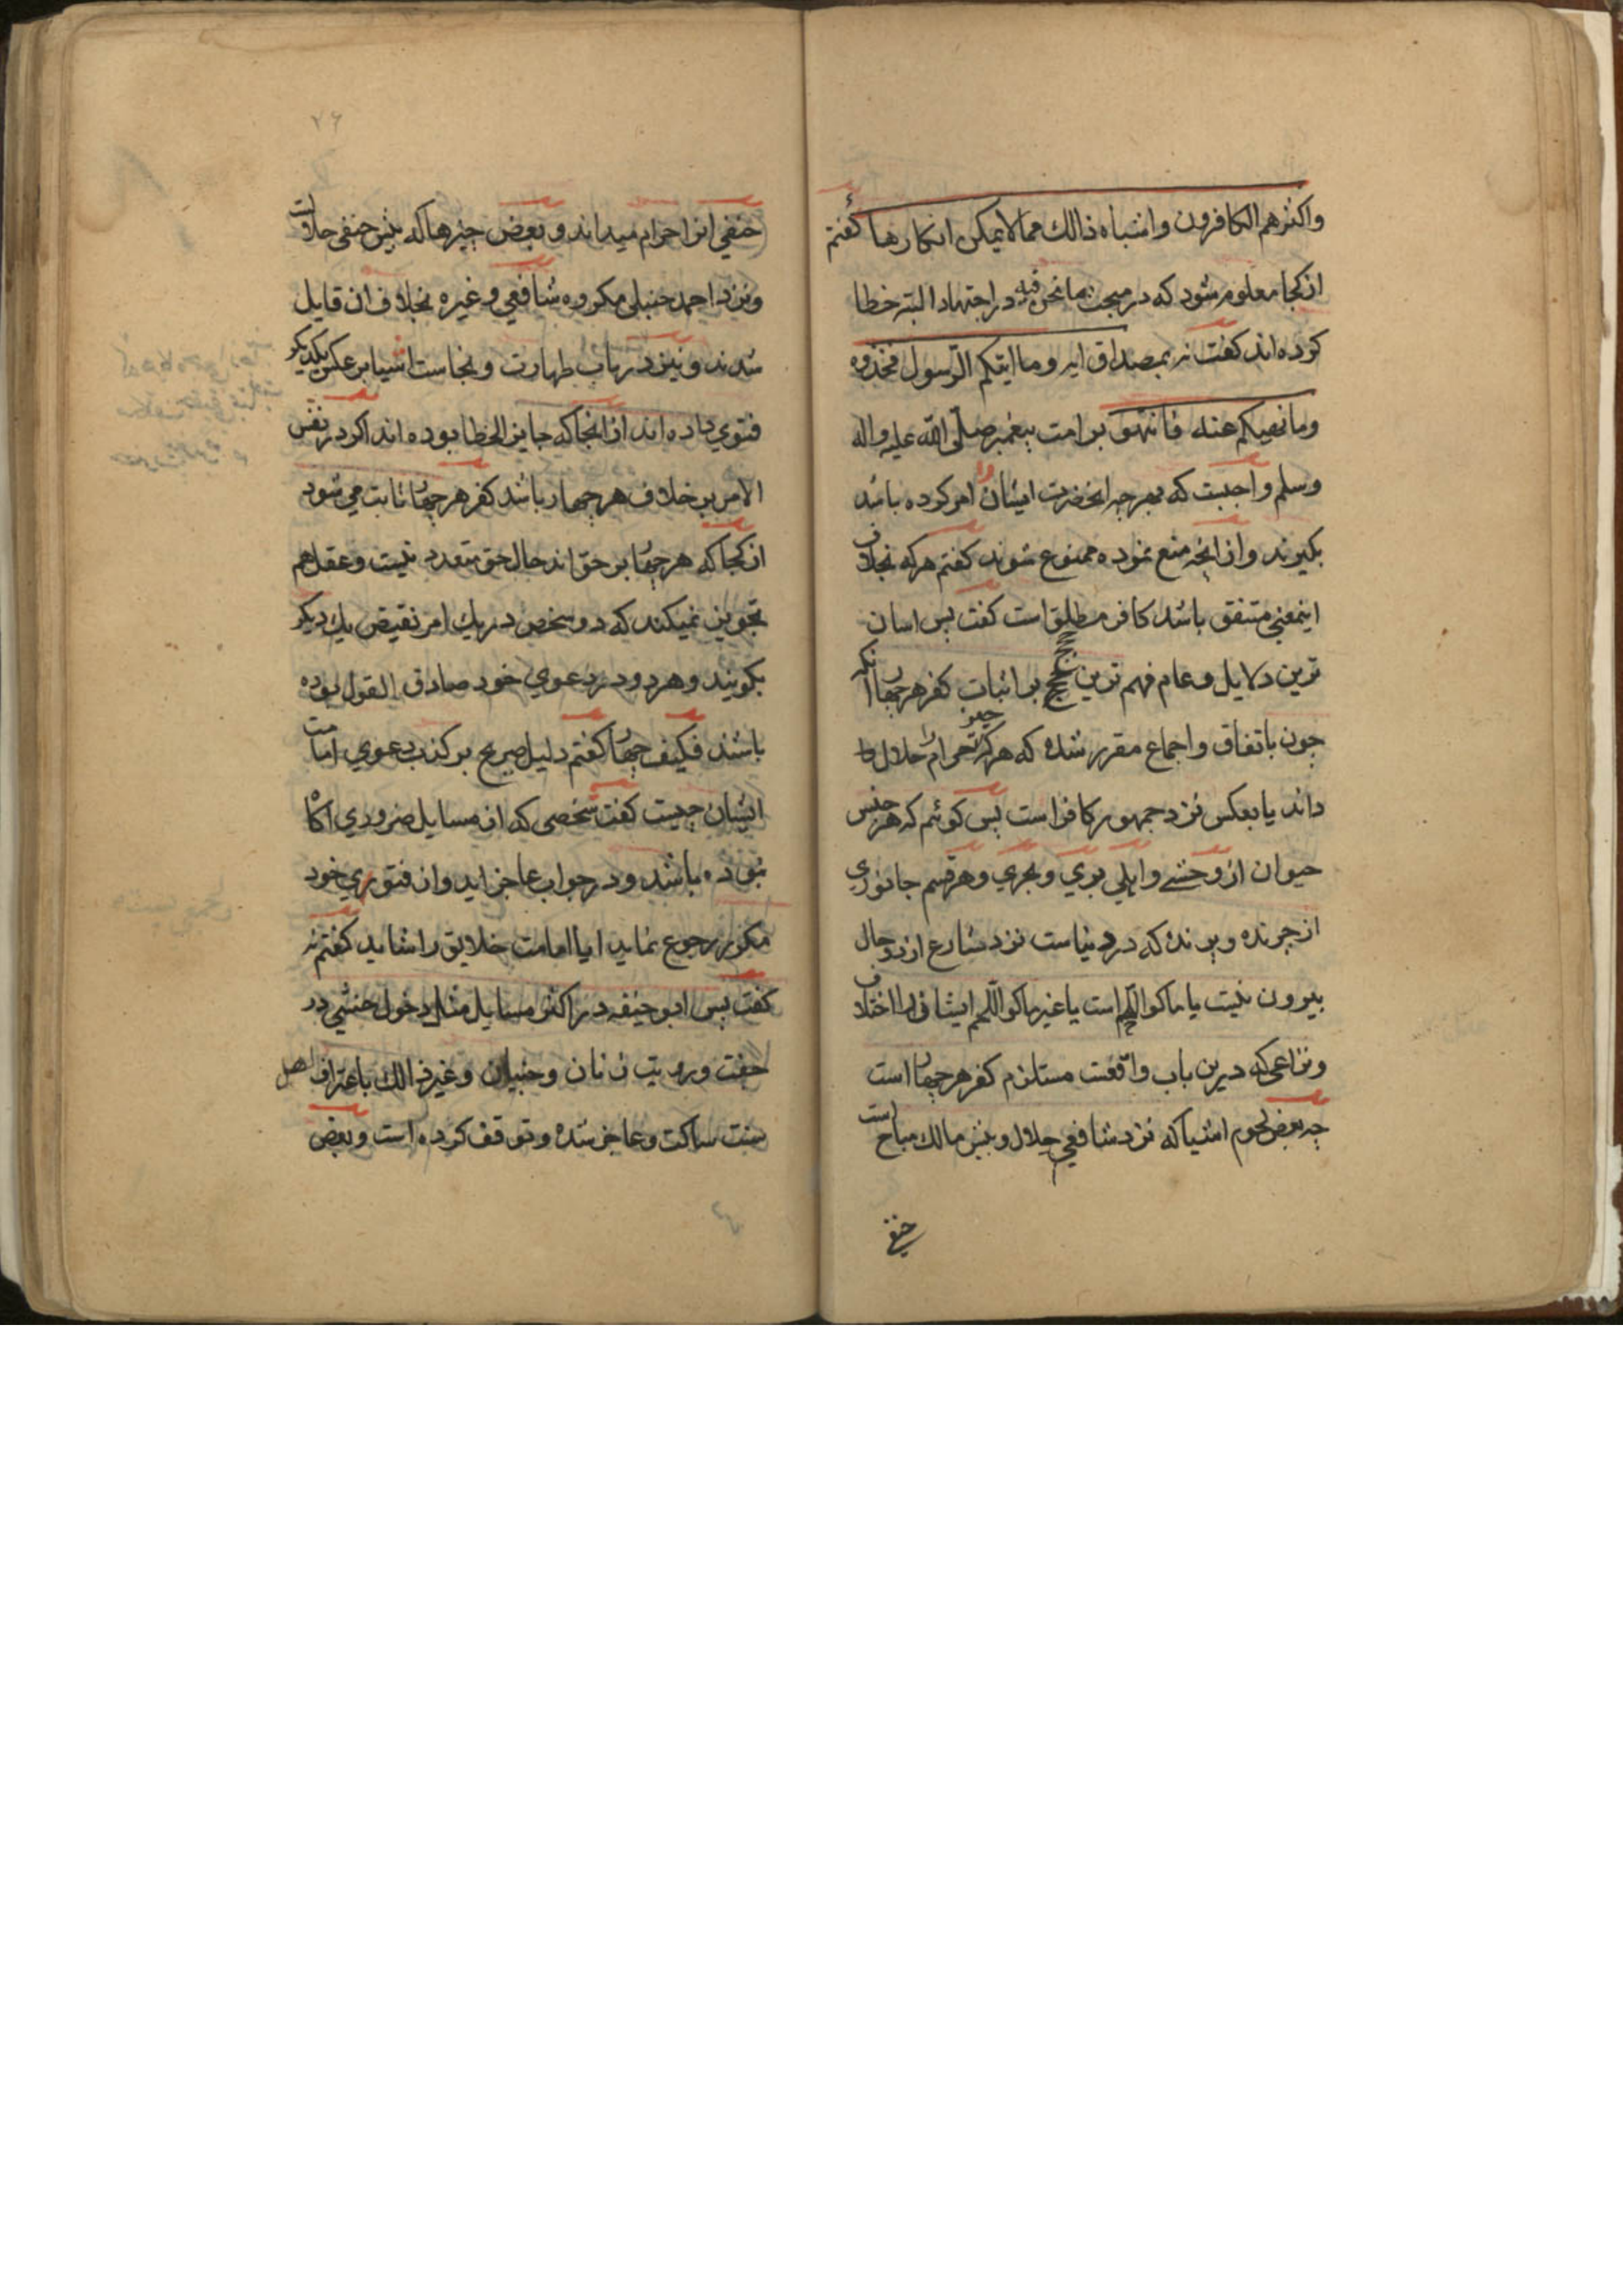 واكثرهم الكافرون وامثباه ذالك مما لا يمكن انكارها كفتم
از كجا معلوم شود كه در مبحث بما نحن فيه در اجتهاد البته خطا
كرده اند كفت نه بمصداق ايه وما اتيكم الرسول فخذوه
وما نهيكم عنه فانتهوا بر امت پيغمبر صلى الله عليه واله
وسلم واجبست كه بهرچه انحضرت ايشان را امر كرده باشد
بكيرند واز انچه منع نموده ممنوع شوند كفتم هركه بخلاف
اينمعنى متفق باشد كافر مطلق است كفت پس اسان
ترين دلايل وعام فهم ترين حجج بر اثبات كفر هر چهار انكه
چون باتفاق واجماع مقرر شده كه هركه چيز حرام را حلال
داند يا بعكس نزد جمهور كافر است پس كوئم كه هر جنس
حيوان از وحشي واهلي بري وبحري وهر قسم جانوري
از چرنده وپرنده كه در دنياست نزد شارع از دو حال
بيرون نيست يا ماكول اللحم است يا غير ماكول اللحم ايشان را اختلاف
ونزاعى كه درين باب واقعست مستلزم كفر هر چهار است
چه بعض لحوم اشيا كه نزد شافعي حلال وپيش مالك مباح است
حنفي
٧٦
حنفي انرا حرام ميداند وبعض چيزها كه پيش حنفى حلال است
ونزد احمد حنبلى مكروه شافعي وغيره بخلاف ان قايل
شدند ونيز در باب طهارت ونجاست اشيا بر عكس يكديكر
فتوي داده اند از انجا كه جايز الخطا بوده اند اكر در نفس
الامر بر خلاف هر چهار باشد كفر هر چهار ثابت مي شود
از كجا كه هر چهار بر حق اند حال حق متعدد نيست وعقل هم
تجويز نميكند كه دو شخص در يك امر نقيض يك ديكر
بكويند وهر دو در دعوي خود صادق القول بوده
باشند فكيف چهار كفتم دليل صريح بر كذب دعوي امامت
ايشان چيست كفت شخصى كه از مسايل ضروري اكاه
نبوده باشد ودر جواب عاجز ايد واز فتوري خود
مكرر رجوع نمايد ايا امامت خلايق را شايد كفتم نه
كفت پس ابو حنيفه در اكثر مسايل مثل دخول خنثي در
جنت ورويت زنان وجنيان وغير ذالك باعتراف اهل
سنت ساكت وعاجز شده وتوقف كرده است وبعض